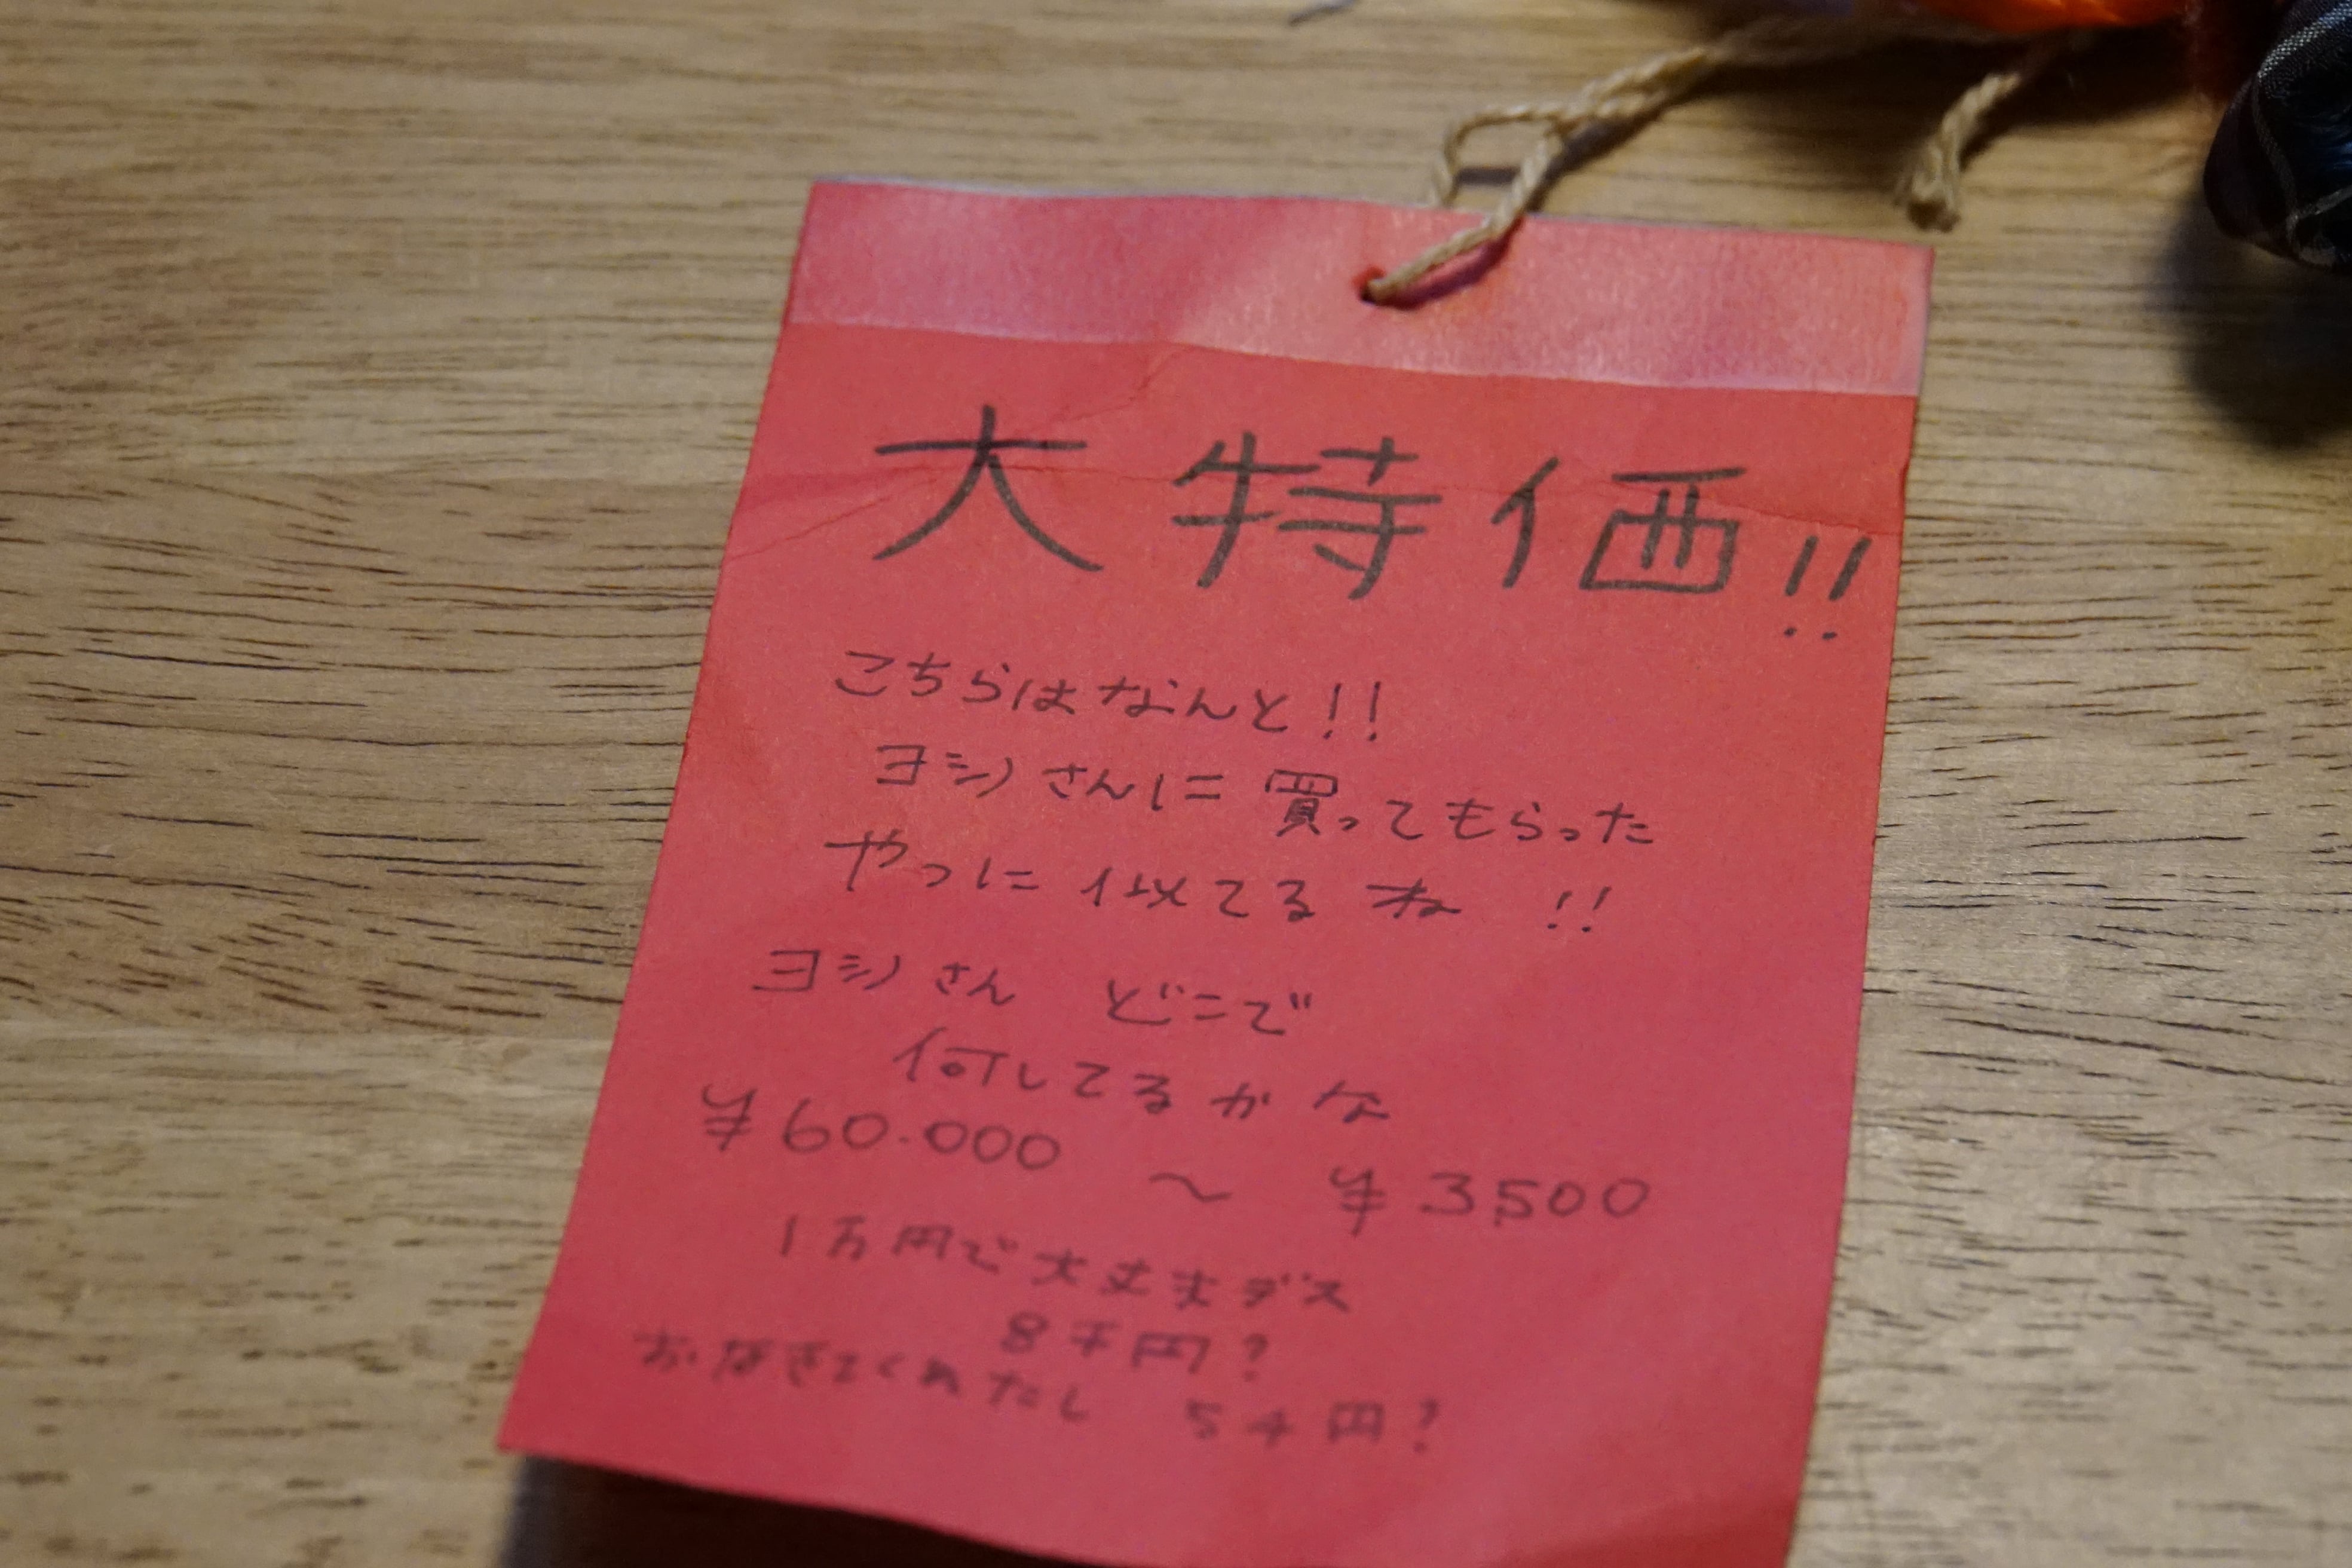 大特価!!
こちらはなんと!!
ヨシノさんに買ってもらった
やつに似てるね !!
ヨシノさん どこで
何してるかな
¥60.000 ~ ¥3,500
1万円で大丈夫デス
8千円?
おなきてくれたし 5千円?